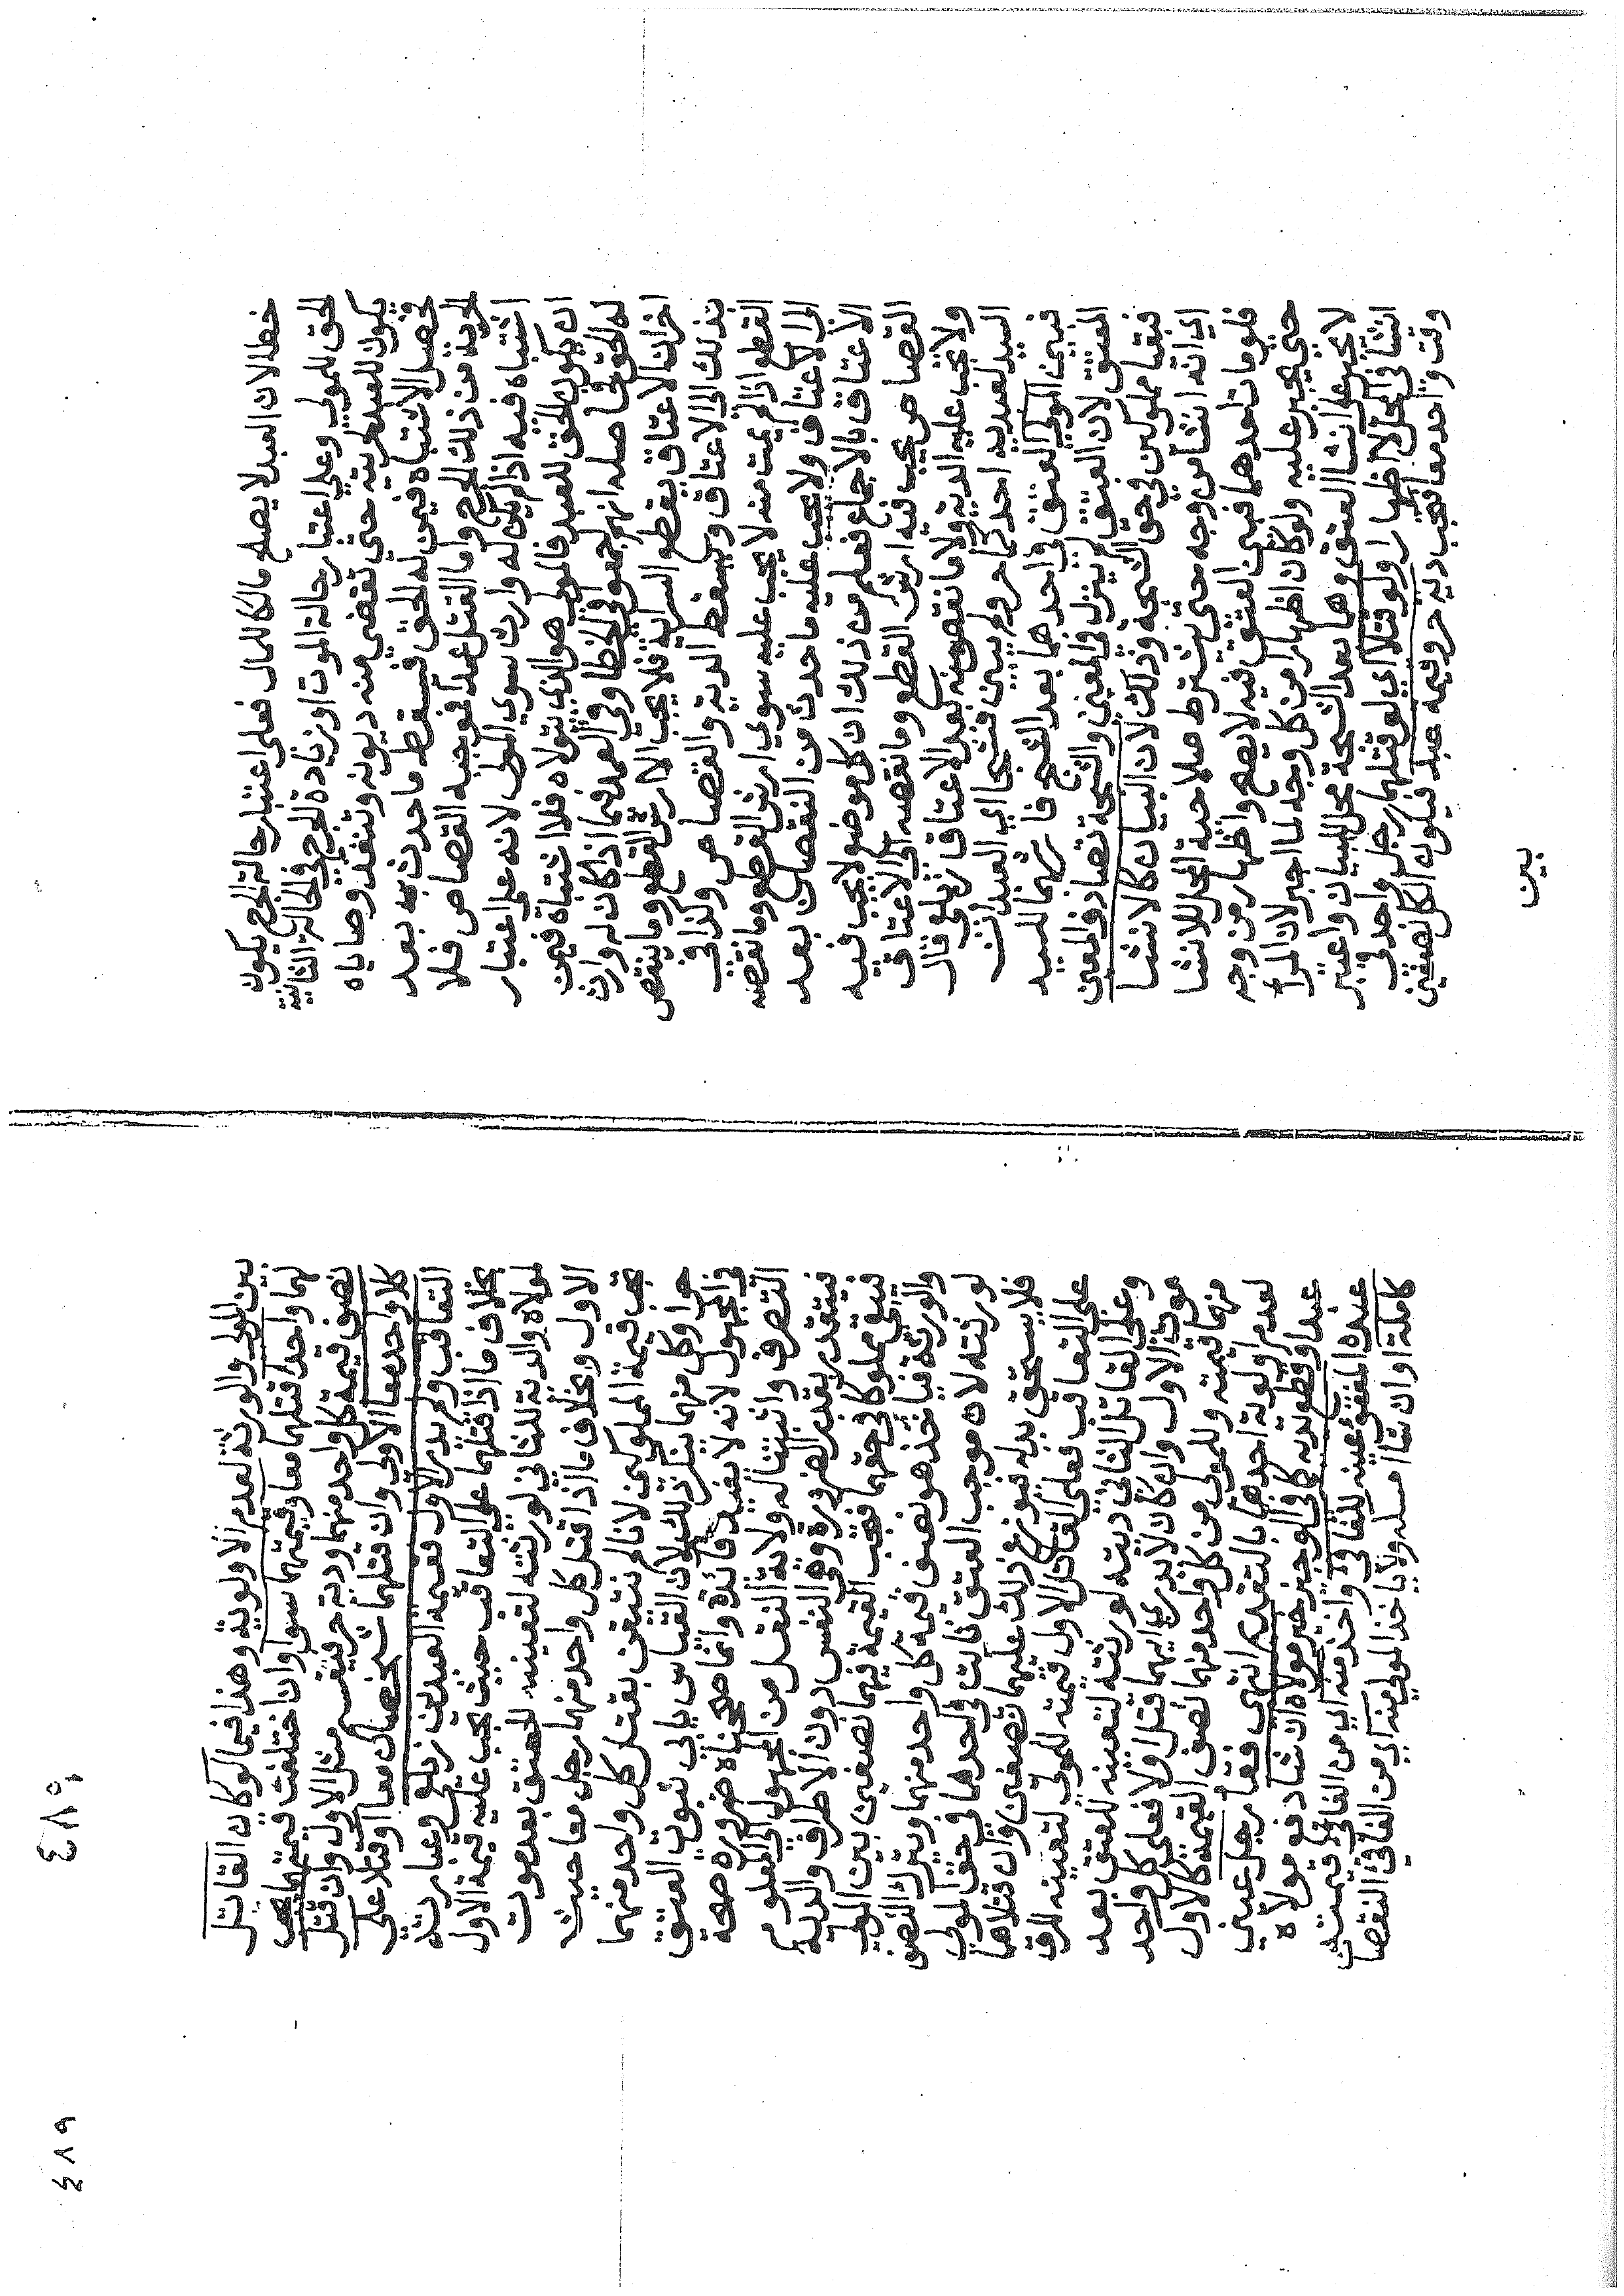 خطا لان العبد لا يصلح مالكا للمال فعلى اعتبار حالة الجرح يكون
الحق للمولي وعلي اعتبار حالة الموت او زيادة الجرح في الحالة الثانية
يكون للعبد لحريته حتي تقضي منه ديونه وتنفذ وصاياه
فحصل الاشتباه فيمن له الحق فسقط ما حدث به بعد
الحرية من ذلك الجرح واما القتل عمدا فموجبه القصاص فلا
اشتباه فيه اذا لم يكن له وارث سوي المولى لانه على اعتبار
ان يكون الحق للعبد فالمولي هو الذي يتولاه فلا اشتباه فيمن
له الحق فحاصله انهم اجمعوا في الخطا وفي العمد فيما اذا كان له وارث
اخر ان الاعتاق يقطع السراية فلا يجب الا ارش القطع وما ينقص
بذلك الى الاعتاق ويسقط الدية والقصاص وكذا في
القطع اذا لم يمت منه لا يجب عليه سوي ارش القطع وما نقصه
الى الاعتاق ولا يجب عليه ما حدث من النقصان بعد
الاعتاق بالاجماع فعلم من ذلك ان كل موضع لا يجب فيه
القصاص يجب فيه ارش القطع وما نقصه الى الاعتاق
ولا يجب عليه الدية ولا ما نقص منه بعد الاعتاق زيلعي قال
السيد لعبديه احد كما حر ولم يبين فشجا اي العبدان
فبين المولى العتق في احدهما بعد الشج فارشهما للسيد
المعتق لان العتق لم ينزل في المعين والشجة تصادف المعين
فبقيا مملوكين في حق الشجة وذلك لان البيان كالانشا
اي انه انشا من وجه حتى يشترط صلاحية المحل للانشا
فلو مات احدهما فبين العتق فيه لا يصح واظهار من وجه
حتي يجبر عليه ولو كان اظهارا من كل وجه لما اجبر لان المرا
لا يجبر على انشا العتق وهما بعد الشجة محل للبيان واعتبر
انشا في المحل لا اظهارا ولو قتلا اي لو قتلهما رجل واحد في
وقت واحد معا تجب دية حر وقيمة عبد فيكون الكل نصفين
بين
بين المولى والورثة لعدم الاولوية وهذا فيما لو كان القاتل
لهما واحدا قتلهما معا وقيمتهما سوا وان اختلفت قيمتهما يجب
نصف قيمة كل واحد منهما ودية حر فيقسم مثل الاول وان قتل
كلا واحد معا الاولى وان قتلهما شخصان معا او قتلا على
التعاقب ولم يدر الاول فقيمة العبدين زيلعي وعبارته
بخلاف ما اذا قتلهما على التعاقب حيث يجب عليه قيمة الاول
لمولاه والدية للثاني لورثته لتعينه للعتق بعد موت
الاول وبخلاف ما اذا قتل كل واحد منهما رجل معا حيث
تجب قيمة المملوكين لانا لم نتيقن بقتل كل واحد منهما
حرا وكل منهما ينكر ذلك لان القياس يابى ثبوت العتق
في المجهول لانه لا يفيد فائدة وانما صححناه ضرورة صحة
التصرف واثبتنا له ولاية النقل من المجهول الى المعلوم
فيتقدر بقدر الضرورة وهي النفس دون الاطراف والدية
فبقي مملوكا في حقهما فتجب القيمة فيهما نصفين بين المولى
والورثة فياخذ هو نصف قيمة كل واحد منهما ويترك النصف
لورثته لان موجب العتق ثابت في احدهما في حق المولى
فلا يستحق بدله فيوزع ذلك عليهما نصفين وان قتلاهما
على التعاقب فعلى القاتل الاول قيمته للمولى لتعينه للرق
وعلى القاتل الثاني ديته لورثته لتعينه للعتق بعد
موت الاول وان كان لا يدري ايهما قتل اولا فعلى كل واحد
منهما قيمته وللمولى من كل واحد منهما نصف القيمة كالاول
لعدم اولوية احدهما بالتقدم انتهى فقا رجل عيني
عبد او قطع يديه كما في الوجيز خير مولاه ان شا دفع مولاه
عبده المفقؤ عينيه للفاقئ واخذ منه اي من الفاقئ قيمته
كاملة او ان شا امسكه ولا ياخذ المولي منه اي من الفاقئ النقصا
٤٨٩
٤٨٩